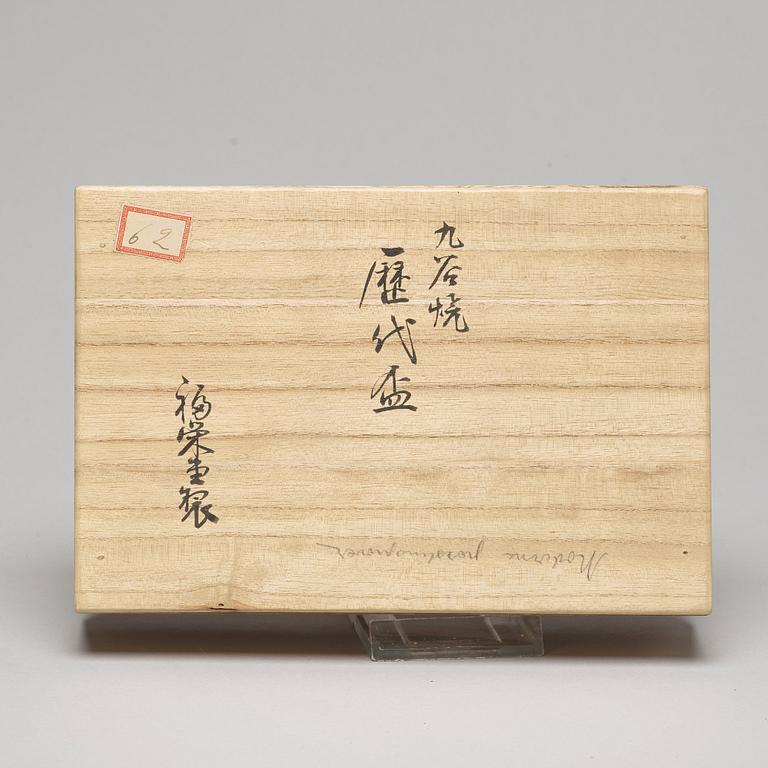 九谷焼
歴代盃
福栄堂製
62
Moderne porslinsprover